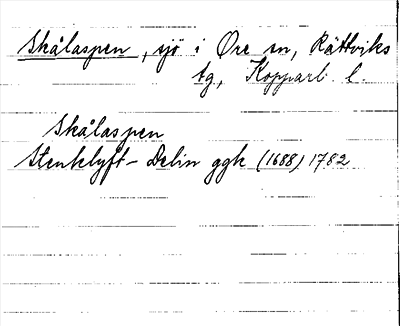 Skålaspen, sjö i Ore sn, Rättviks
tg, Kopparb. l.
Skålaspen
Stenklyft-Delin ggk (1688) 1782